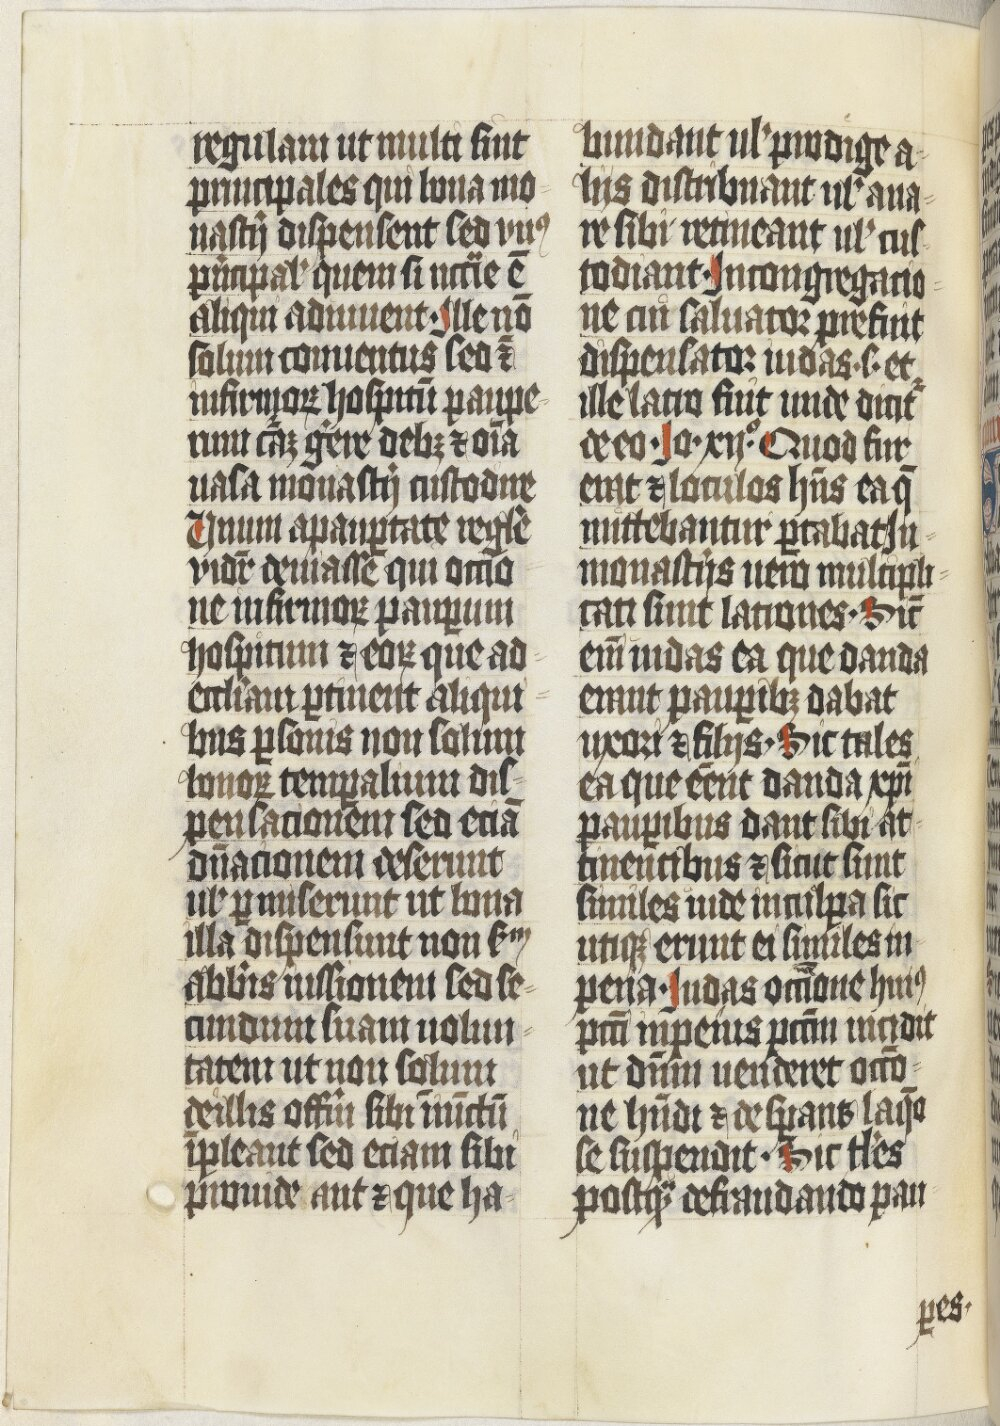 regulam ut multi sint
principales qui bona mo-
nastĳ dispensent sed vnꝰ
pͥncipalʼ quem si nccͥe ē
aliqui adiuuent. Ille nō
solum conuentus sed ⁊
infirmoꝝ hospitū paupe-
rum cāꝫ gerere debꝫ ⁊ oīa
uasa monastĳ custodire
Unum a pauꝑtate regl̄e
vidr̄ deuiasse qui occō
ne infirmoꝝ pauꝑum
hospitum ⁊ eoꝝ que ad
eccl̄iam ꝑtinent aliqui-
bus ꝑsonis non solum
bonoꝝ temꝑalium dis-
pensacionem sed eciā
dn̄acionem deserunt
ulʼ ꝑmiserunt ut bona
illa dispensunt non sᵐ
abb̄is iussionem sed se-
cundum suam uolun-
tatem ut non solum
de illis offm̄ sibi īiūctū
īpleant sed eciam sibi
prouide ant ⁊ que ha-
bundant ulʼ prodige a-
lĳs distribuant ulʼ aua-
re sibi retineant ulʼ cus-
todiant. In congregacio-
ne cū saluator prefuit
dispensator iudas .s. et
ille latro fuit unde dicit᷑
de eo. Jo. xĳ° Quod fur
erat ⁊ loculos hn̄s ea q̄
mittebantur ꝑtabat In-
monastĳs uero multipli-
cati sunt latrones. Sic̄
em̄ iudas ea que danda
erant pauꝑibꝫ dabat
uxori ⁊ filĳs. Sic tales
ea que eēnt danda xp̄i
pauꝑibus dant sibi at-
tinentibus ⁊ sicut sunt
similes iude in culpa sic
utiqꝫ erunt ei similes in
pena. Judas occōne huiꝰ
pctī in peius pctm̄ incidit
ut dn̄m uenderet occō-
ne hn̄di ⁊ desꝑans laq̄o
se suspendit. Sic tl̄es
postqᷓ defraudando pau
ꝑes.